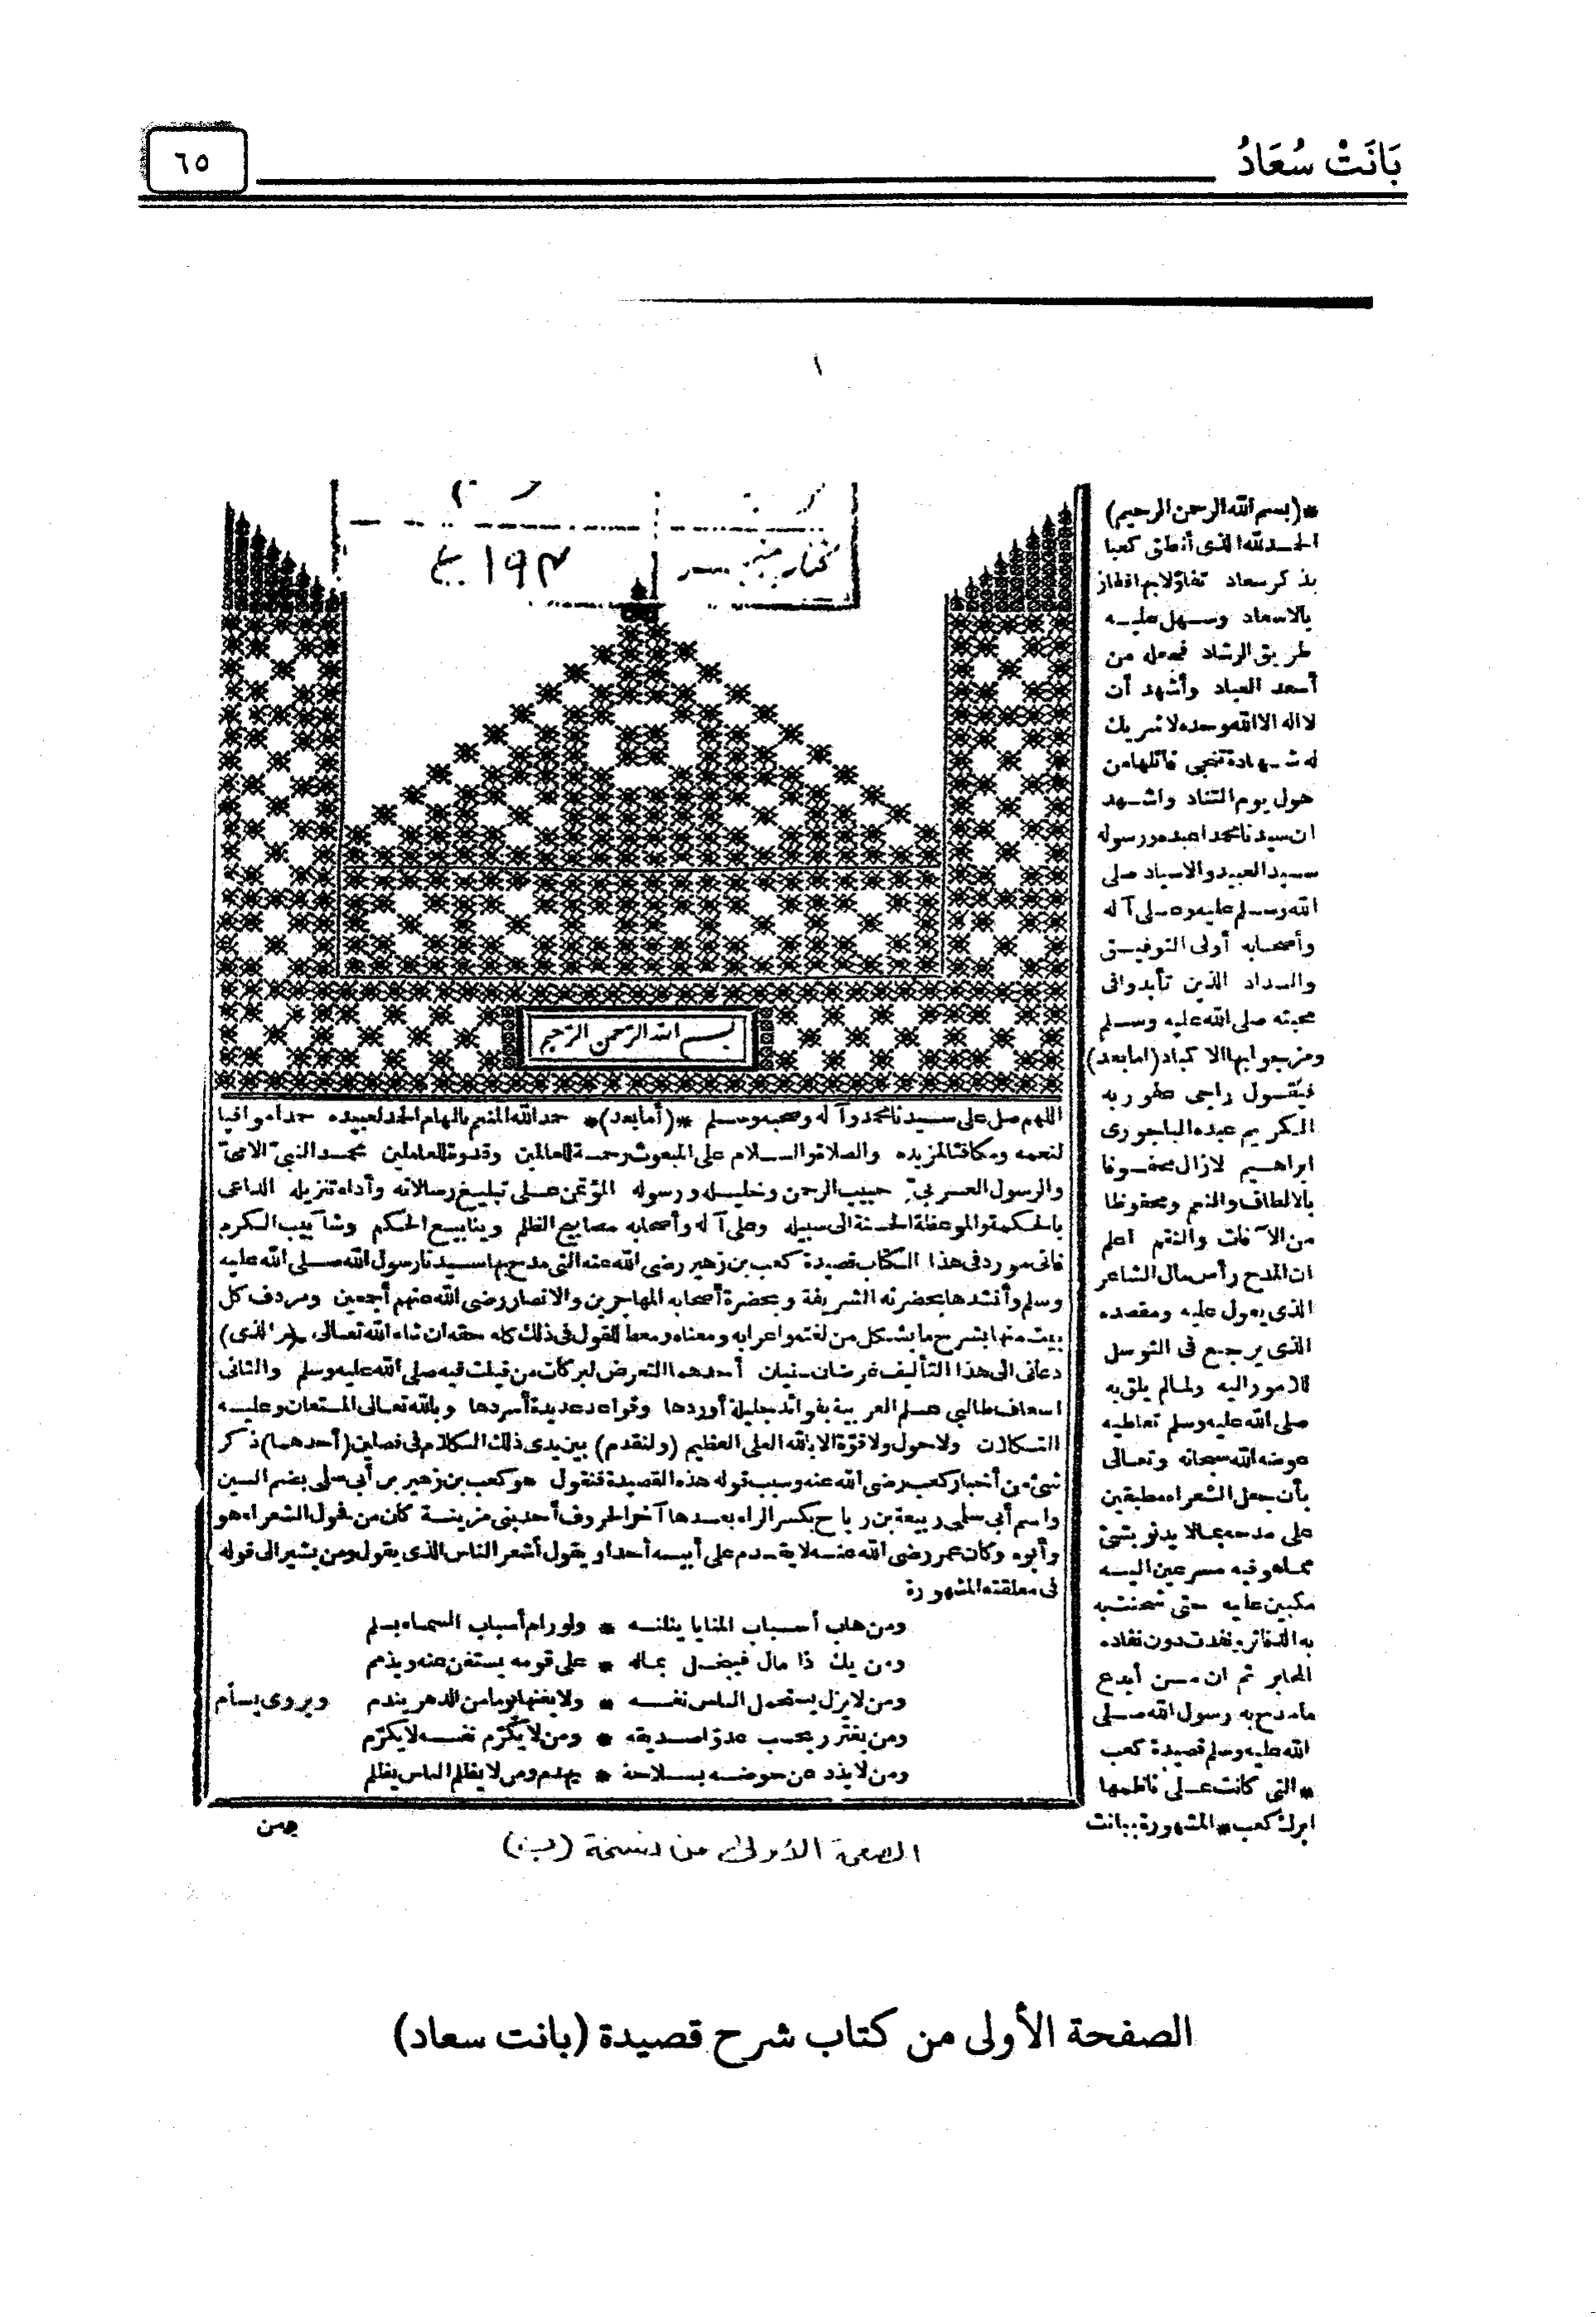 بَانَتْ سُعَادُ
٦٥
١
*(بسم الله الرحمن الرحيم)
الحمد لله الذى أنطق كعبا
بذكر سعاد تفاؤلا بها فظاز
بالاسعاد وسهل عليه
طريق الرشاد فجعله من
أسعد العباد وأشهد أن
لا اله الا الله وحده لا شريك
له شهادة تنجى قائلها من
هول يوم التناد واشهد
ان سيدنا محمدا عبده ورسوله
سيد العبيد والاسياد صلى
الله وسلم عليه وعلى آله
وأصحابه أولى التوفيق
والسداد الذين تأيدوا فى
محبته صلى الله عليه وسلم
ومزجوا بها الاكباد (اما بعد)
فيقول راجى عفو ربه
الكريم عبده الباجورى
ابراهيم لازال محفوفا
بالالطاف والنعم ومحفوظا
من الآفات والنقم اعلم
ان المدح رأس مال الشاعر
الذى يعول عليه ومقصده
الذى يرجع فى التوسل
للامور اليه ولمالم يلق به
صلى الله عليه وسلم تعاطيه
عوضه الله سبحانه وتعالى
بأن جعل الشعراء مطبقين
على مدحه بمالا يدنو بشئ
مماهو فيه مسرعين اليه
مكبين عليه حتى شحنت به
به الدفاتر ونفدت دون نفاده
المحابر ثم ان من أبدع
مامدح به رسول الله صلى
الله عليه وسلم قصيدة كعب
*التى كانت على ناظمها
ابرك كعب*المشهورة ببانت
بسم الله الرحمن الرحيم
اللهم صل على سيدنا محمد وآله وصحبه وسلم *(أما بعد)* حمد الله المنعم بالهام الحمد لعبيده حمدا موافيا
لنعمه ومكافئا لمزيده والصلاة والسلام على المبعوث رحمة للعالمين وقدوة للعاملين محمد النبى الامى
والرسول العربى حبيب الرحمن وخليله ورسوله المؤتمن على تبليغ رسالاته وأداء تنزيله الداعى
بالحكمة والموعظة الحسنة الى سبيله وعلى آله وأصحابه مصابيح الظلم وينابيع الحكم وشآبيب الكرم
فانى مورد فى هذا الكتاب قصيدة كعب بن زهير رضى الله عنه التى مدح بها سيدنا رسول الله صلى الله عليه
وسلم وأنشدها بحضرته الشريفة وبحضرة أصحابه المهاجرين والانصار رضى الله عنهم أجمعين ومردف كل
بيت منها بشرح ما يشكل من لغته واعرابه ومعناه ومعط للقول فى ذلك كله حقه ان شاء الله تعالى (والذى)
دعانى الى هذا التأليف غرضان سنيان أحدهما التعرض لبركات من قيلت فيه صلى الله عليه وسلم والثانى
اسعاف طالبى علم العربية بفوائد جليلة أوردها وقواعد عديدة أسردها وبالله تعالى المستعان وعليه
التكلان ولا حول ولا قوة الا بالله العلى العظيم (ولنقدم) بين يدى ذلك الكلام فى فصلين (أحدهما) ذكر
شئ من أخبار كعب رضى الله عنه وسبب قوله هذه القصيدة فنقول هو كعب بن زهير بن أبى سلمى بضم السين
واسم أبى سلمى ربيعة بن رياح بكسر الراء بعدها آخر الحروف أحد بنى مزينة كان من فحول الشعراء هو
وأبوه وكان عمر رضى الله عنه لا يقدم على أبيه أحدا ويقول أشعر الناس الذى يقول ومن يشير الى قوله
فى معلقته المشهورة
ومن هاب أسباب المنايا ينلنه * ولو رام أسباب السماء بسلم
ومن يك ذا مال فيبخل بماله * على قومه يستغن عنه ويذمم
ومن لا يزل يستحمل الناس نفسه * ولا يغنها يوما من الدهر يندم ويروى يسأم
ومن يغترر يحسب عدوا صديقه * ومن لا يكرّم نفسه لا يكرّم
ومن لا يذد عن حوضه بسلاحه * يهدم ومن لا يظلم الناس يظلم
ومن
الصفحة الأولى من نسخة (ب)
الصفحة الأولى من كتاب شرح قصيدة (بانت سعاد)